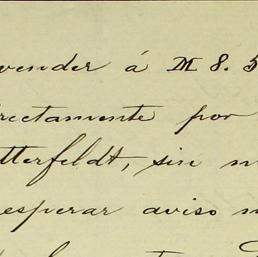 vender á M 8. 5
rectamente por
tterfeldt, sin m
esperar aviso m